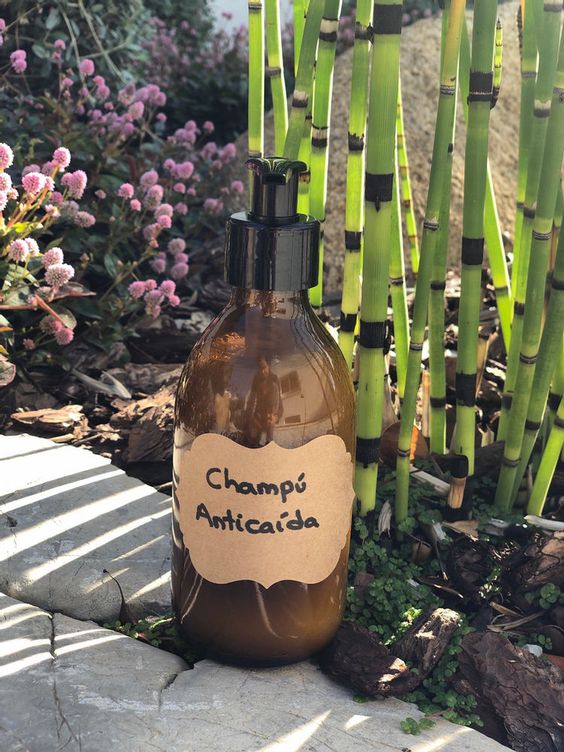 Champú
Anticaída